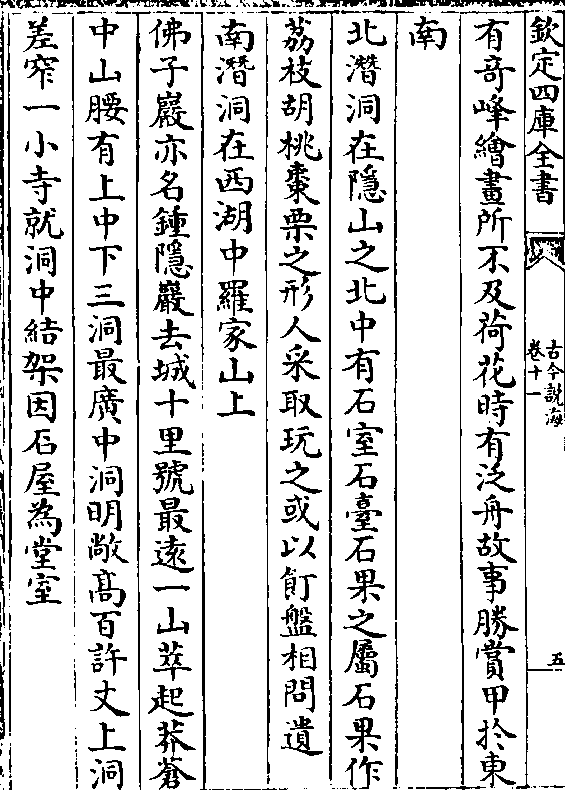 欽定四庫全書
古今說海
卷十一
五
有奇峰繪畫所不及荷花時有泛舟故事勝賞甲於東
南
北潛洞在隱山之北中有石室石臺石果之屬石果作
荔枝胡桃棗栗之形人采取玩之或以飣盤相問遺
南潛洞在西湖中羅家山上
佛子巖亦名鍾隱巖去城十里號最遠一山萃起莽蒼
中山腰有上中下三洞最廣中洞明敞髙百許丈上洞
差窄一小寺就洞中結架因石屋為堂室